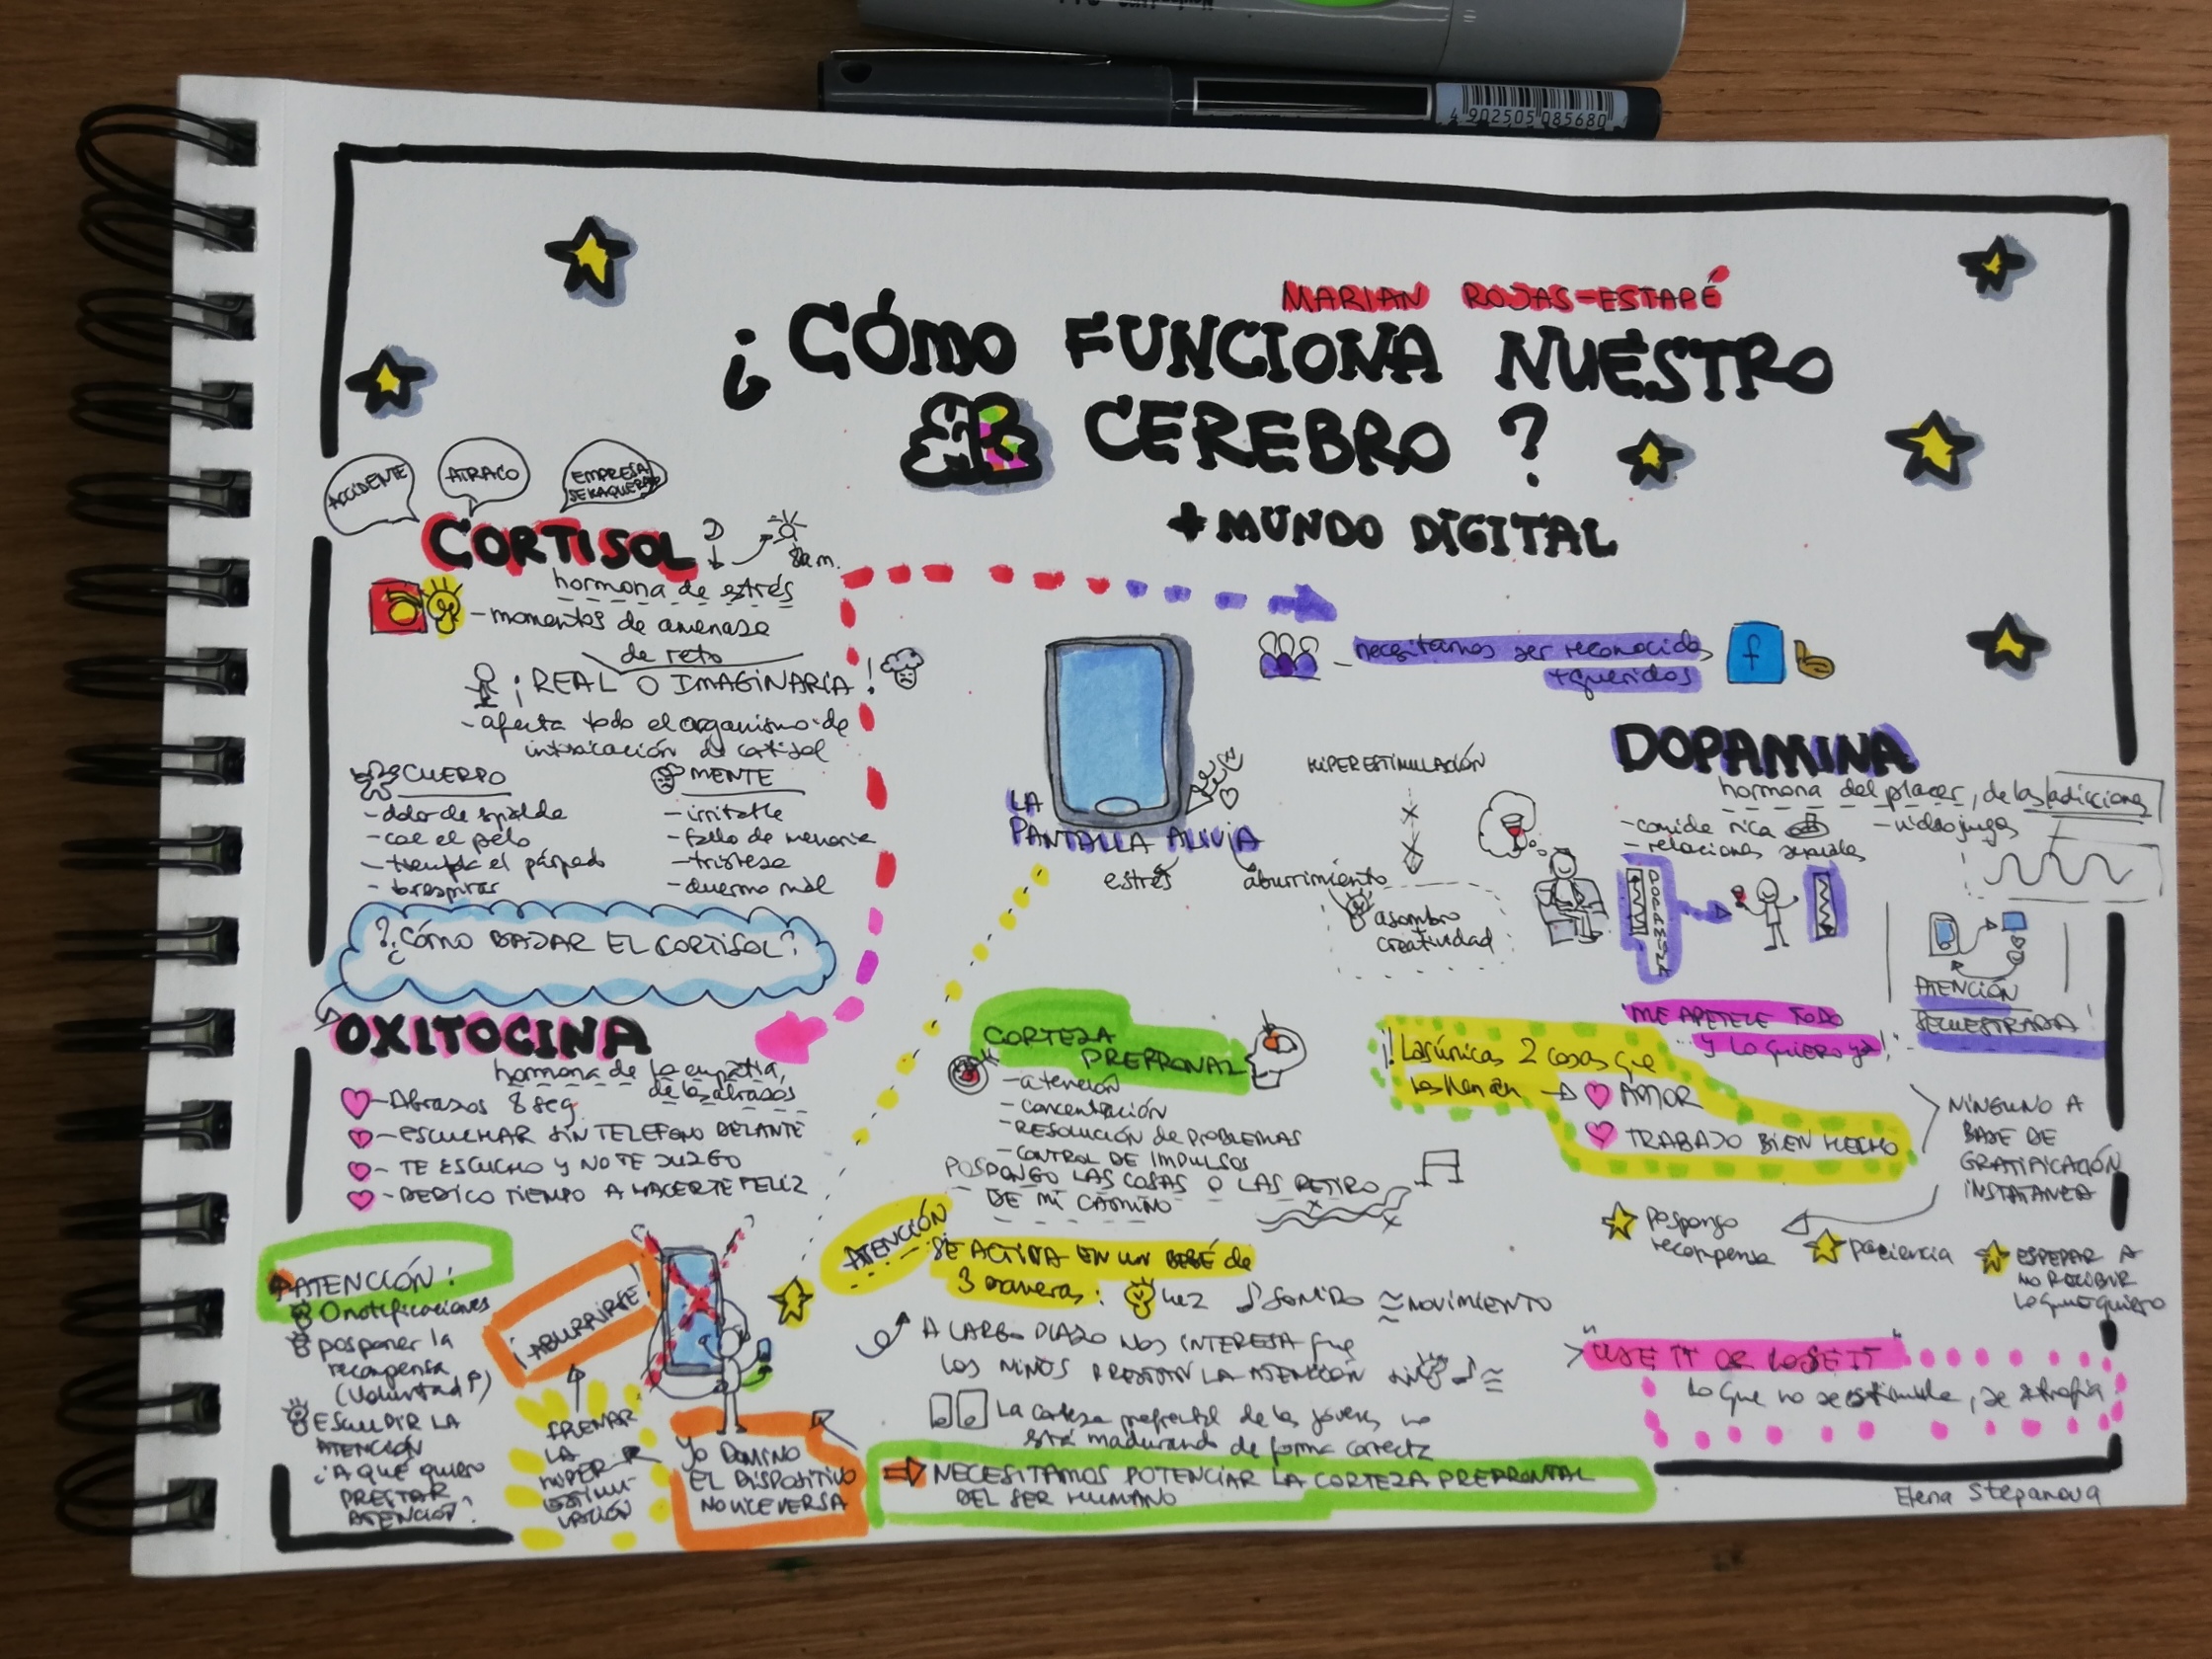 4 902505 085680
MARIAN ROJAS-ESTAPÉ
¿CÓMO FUNCIONA NUESTRO
CEREBRO?
+ MUNDO DIGITAL
ACCIDENTE
ATRACO
EMPRESA
CORTISOL
8a.m.
hormona de estrés
- momentos de amenaza
de reto
¡REAL O IMAGINARIA!
- afecta todo el organismo de
intoxicación de cortisol
CUERPO
- dolor de espalda
- cae el pelo
- tiembla el párpado
MENTE
- irritable
- fallo de memoria
- tristeza
- duermo mal
¿CÓMO BAJAR EL CORTISOL?
OXITOCINA
hormona de la empatía,
de los abrazos
- Abrazos 8 seg
- ESCUCHAR SIN TELEFONO DELANTE
- TE ESCUCHO Y NO TE JUZGO
- DEDICO TIEMPO A HACERTE FELIZ
ATENCIÓN!
0 notificaciones
posponer la
recompensa
(voluntad↑)
ESCULPIR LA
ATENCIÓN
¿A QUÉ QUIERO
PRESTAR
ATENCIÓN?
¡ABURRIRSE!
FRENAR
LA
HIPER
ESTIMU-
LACIÓN
YO DOMINO
EL DISPOSITIVO
NO VICEVERSA
- necesitamos ser reconocidos
+ queridos
f
LA
PANTALLA ALIVIA
estrés
aburrimiento
HIPERESTIMULACIÓN
asombro
creatividad
DOPAMINA
hormona del placer, de las adicciones
- comida rica
- videojuegos
- relaciones sexuales
DOPAMINA
ATENCIÓN
SECUESTRADA!
ME APETECE TODO
Y LO QUIERO YA!
CORTEZA
PREFRONAL
- atención
- concentración
- RESOLUCIÓN de PROBLEMAS
- CONTROL DE IMPULSOS
POSPONGO LAS COSAS O LAS RETIRO
DE MI CAMINO
¡Las únicas 2 cosas que
los llenan → AMOR
TRABAJO BIEN HECHO
NINGUNO A
BASE DE
GRATIFICACIÓN
INSTATANEA
Pospongo
recompensa
paciencia
ESPERAR A
NO RECIBIR
lo que quiero
ATENCIÓN
SE ACTIVA EN UN BEBÉ de
3 maneras:
LUZ
SONIDO
MOVIMIENTO
A LARGO PLAZO NOS INTERESA que
LOS NIÑOS PRESTAN LA ATENCIÓN sin
La corteza prefrontal de los jóvenes no
está madurando de forma correcta
⇒ NECESITAMOS POTENCIAR LA CORTEZA PREFRONTAL
DEL SER HUMANO
"USE IT OR LOSE IT"
Lo que no se estimula, se atrofia
Elena Stepanova